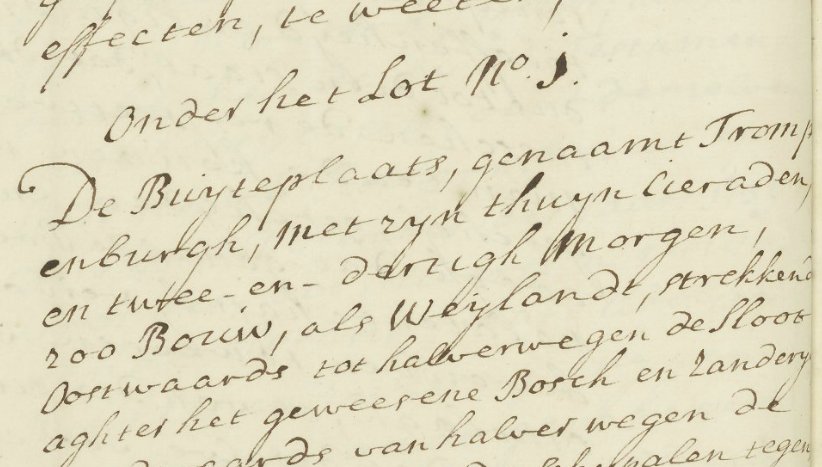 effecten, te weeten,
Onder het Lot No. j.
De Buyteplaats, genaamt Tromp
enburgh, met zyn thuyn Cieraden,
en twee-en-derzigh Morgen,
zoo Bouw, als Weylandt, strekkend
Oostwaards tot halverwegen de Sloot
aghter het geweesene Bosch en Zandery
van halver wegen de
palen tegen